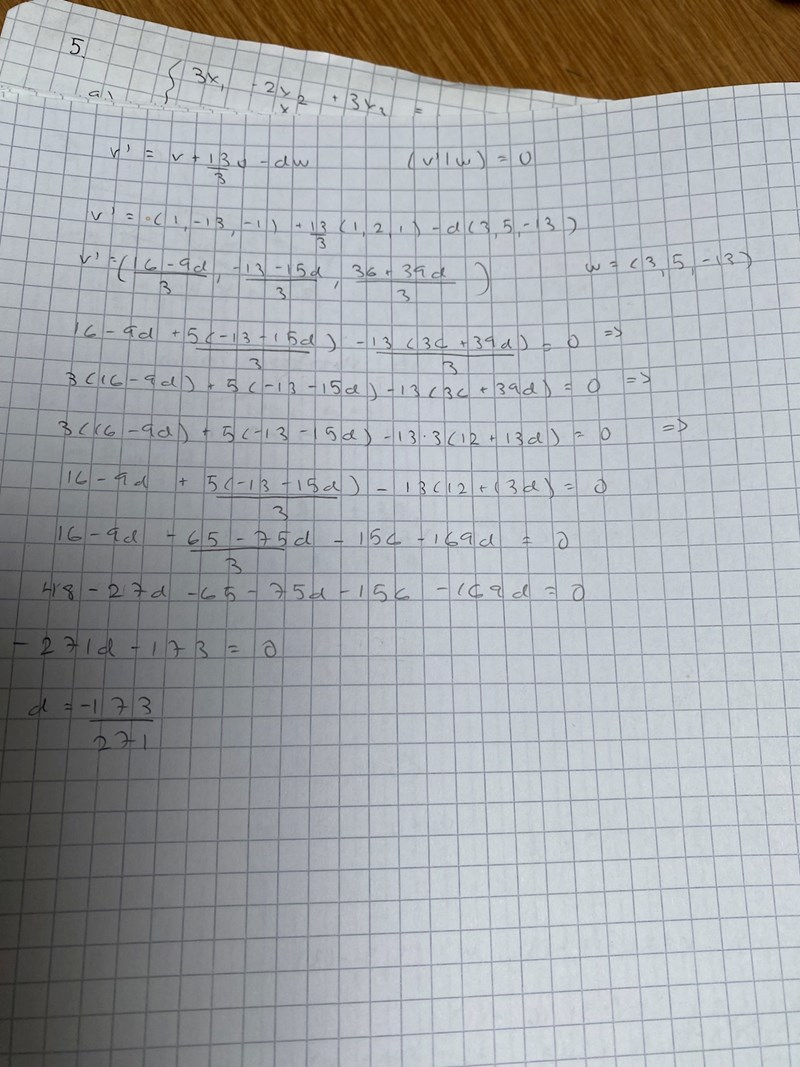 5.
a) { 3x₁ - 2x₂ + 3x₃ =
v' = v + 13/3 u - dw (v'|w) = 0
v' = (1, -13, -1) + 13/3 (1, 2, 1) - d(3, 5, -13)
v' = (16-9d/3, -13-15d/3, 36+39d/3) w = (3, 5, -13)
16-9d + 5(-13-15d)/3 - 13(36+39d)/3 = 0 =>
3(16-9d) + 5(-13-15d) - 13(36+39d) = 0 =>
3(16-9d) + 5(-13-15d) - 13·3(12+13d) = 0 =>
16-9d + 5(-13-15d)/3 - 13(12+13d) = 0
16-9d - 65-75d/3 - 156 - 169d = 0
48 - 27d - 65 - 75d - 156 - 169d = 0
-271d - 173 = 0
d = -173/271